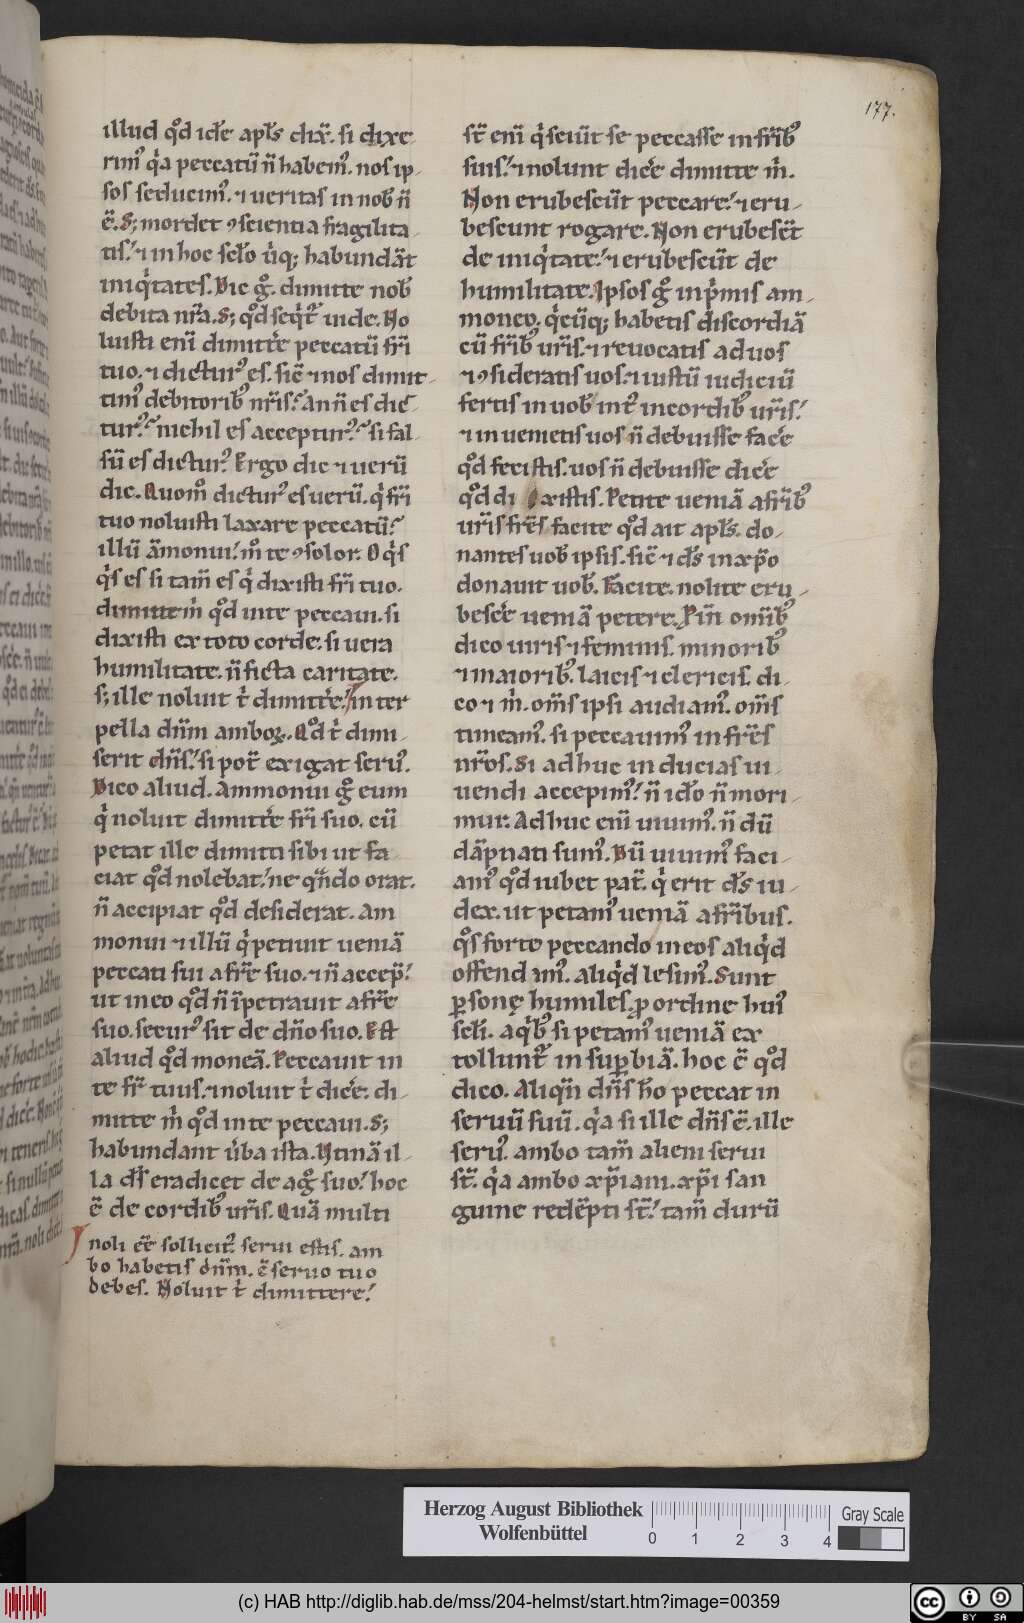 177.
illud qͦd idē apl̄s dix̄. si dixe
rimꝰ qͥa peccatū n̄ habemꝰ. nos ip-
sos seducimꝰ. ⁊ ueritas in nob̄ n̄
ē. S; mordet ꝯscientia fragilita-
tis. ⁊ in hoc scl̄o ub̄iq; habundāt
iniqͥtates. Dic gͦ. dimitte nob̄
debita nr̄a. S; qͦd seqͥt᷑ uide. No
luisti eni̅ dimitte̅ peccatū fr̄i
tuo. ⁊ dicturꝰ es. sic̄ ⁊ nos dimit-
timꝰ debitorib̄ nr̄is. An n̄ es dic̄-
turꝰ. nichil es accepturꝰ. si fal-
sū es dicturꝰ. Ergo dic ⁊ uerū
dic. Quomͦ dicturꝰ es uerū. qͥ fr̄i
tuo noluisti laxare peccatū.
illū āmonui. mͦ te ꝯsolor. O qͥs
qͥs es si tam̄ es qͥ dixisti fr̄i tuo.
dimitte mͥ qͦd in te peccaui. si
dixisti ex toto corde. si uera
humilitate. n̄ ficta caritate.
s; ille noluit tͥ dimitte̅. inter
pella dn̄m amboꝝ. Qͦd tͥ dimi-
serit dn̄s. si pot̄ exigat seruꝰ.
Dico aliud. Ammonui gͦ eum
qͥ noluit dimitte̅ fr̄i suo. cū
petat ille dimitti sibi ut fa
ciat qͦd nolebat. ne qn̄do orat.
n̄ accipiat qͦd desiderat. Am
monui ⁊ illū qͥ petiuit ueniā
peccati sui a fr̄e suo. ⁊ n̄ accep̄.
ut in eo qͦd n̄ īpetrauit a fr̄e
suo. securꝰ sit de dn̄o suo. Est
aliud qͦd moneā. Peccauit in
te fr̄ tuus. ⁊ noluit tͥ dice̅. di-
mitte mͥ qͦd in te peccaui. S;
habundant ūba ista. Utinā il-
la ds̄ eradicet de agͦ suo. hoc
ē de cordib̄ ur̄is. Quā multi
Inoli ēe̅ sollicitꝰ. serui estis. am
bo habetis dn̄m. c̄seruo tuo
debes. Noluit tͥ dimittere.
st̄ eni̅ qͥ sciūt se peccasse in fr̄ib̄
suis. ⁊ nolunt dice̅ dimitte mͥ.
Non erubescūt peccare. ⁊ eru-
bescunt rogare. Non erubescūt
de iniqͥtate. ⁊ erubescūt de
humilitate. Ipsos gͦ inpͥmis am-
moneo. qͥcūq; habetis discordiā
cū fr̄ib̄ ur̄is. ⁊ reuocatis ad uos
⁊ ꝯsideratis uos. ⁊ iustū iudiciū
fertis in uob̄ int̄ in cordib̄ ur̄is.
⁊ inuenietis uos n̄ debuisse face̅
qͦd fecistis. uos n̄ debuisse dice̅
qͦd di xistis. Petite ueniā a fr̄ib̄
ur̄is fr̄es facite qͦd ait apl̄s. do-
nantes uob̄ ipsis. sic̄ ⁊ ds̄ in xp̄o
donauit uob̄. Facite. nolite eru-
besce̅ ueniā petere. Pin̄ omīb̄
dico uiris ⁊ feminis. minorib̄
⁊ maiorib̄. laicis ⁊ clericis. di-
co ⁊ mͥ. om̄s ipsi audiamꝰ. om̄s
timeamꝰ. si peccauimꝰ in fr̄es
nr̄os. Si adhuc inducias ui-
uendi accepimꝰ. n̄ ido̅ n̄ mori-
mur. Adhuc eni̅ uiuimꝰ. n̄ dū
dāpnati sumꝰ. Dū uiuimꝰ faci-
amꝰ qͦd iubet pat̄. qͥ erit ds̄ iu-
dex. ut petamꝰ ueniā a fr̄ibus.
qͦs forte peccando in eos aliqͥd
offendimꝰ. aliqͥd lesimꝰ. Sunt
ꝑsonę humiles ꝓ ordine huiꝰ
scl̄i. a qͥb̄ si petamꝰ ueniā ex
tollunt᷑ in suꝑbiā. hoc ē qͦd
dico. Aliqn̄ dn̄s ho̅ peccat in
seruū suū. qͥa si ille dn̄s ē. ille
seruꝰ. ambo tam̄ alieni serui
st̄. qͥa ambo xp̄iani. xp̄i san
guine redēpti st̄. tam̄ durū
Herzog August Bibliothek
Wolfenbüttel
0 1 2 3 4
Gray Scale
(c) HAB http://diglib.hab.de/mss/204-helmst/start.htm?image=00359
cc BY SA